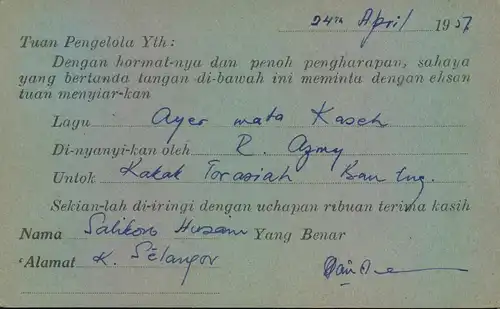 24th April 1957
Tuan Pengelola Yth:
Dengan hormat-nya dan penoh pengharapan, sahaya
yang bertanda tangan di-bawah ini meminta dengan ehsan
tuan menyiar-kan
Lagu Ayer mata Kaseh
Di-nyanyi-kan oleh R. Azmy
Untok Kakak Torasiah
Sekian-lah di-iringi dengan uchapan ribuan terima kasih
Nama Yang Benar
Alamat K. Selangor